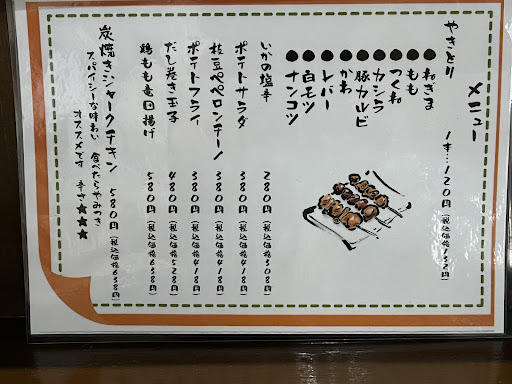 メニュー
やきとり 1本…120円(税込価格132円)
●ねぎま
●もも
●つくね
●カシラ
●豚カルビ
●かわ
●レバー
●白モツ
●ナンコツ
いかの塩辛 280円(税込価格308円)
ポテトサラダ 380円(税込価格418円)
枝豆ペペロンチーノ 380円(税込価格418円)
ポテトフライ 380円(税込価格418円)
だし巻き玉子 480円(税込価格528円)
鶏もも竜田揚げ 580円(税込価格638円)
炭焼きジャークチキン 580円(税込価格638円)
スパイシーな味わい 食べたらやみつき
オススメです 辛さ★★★